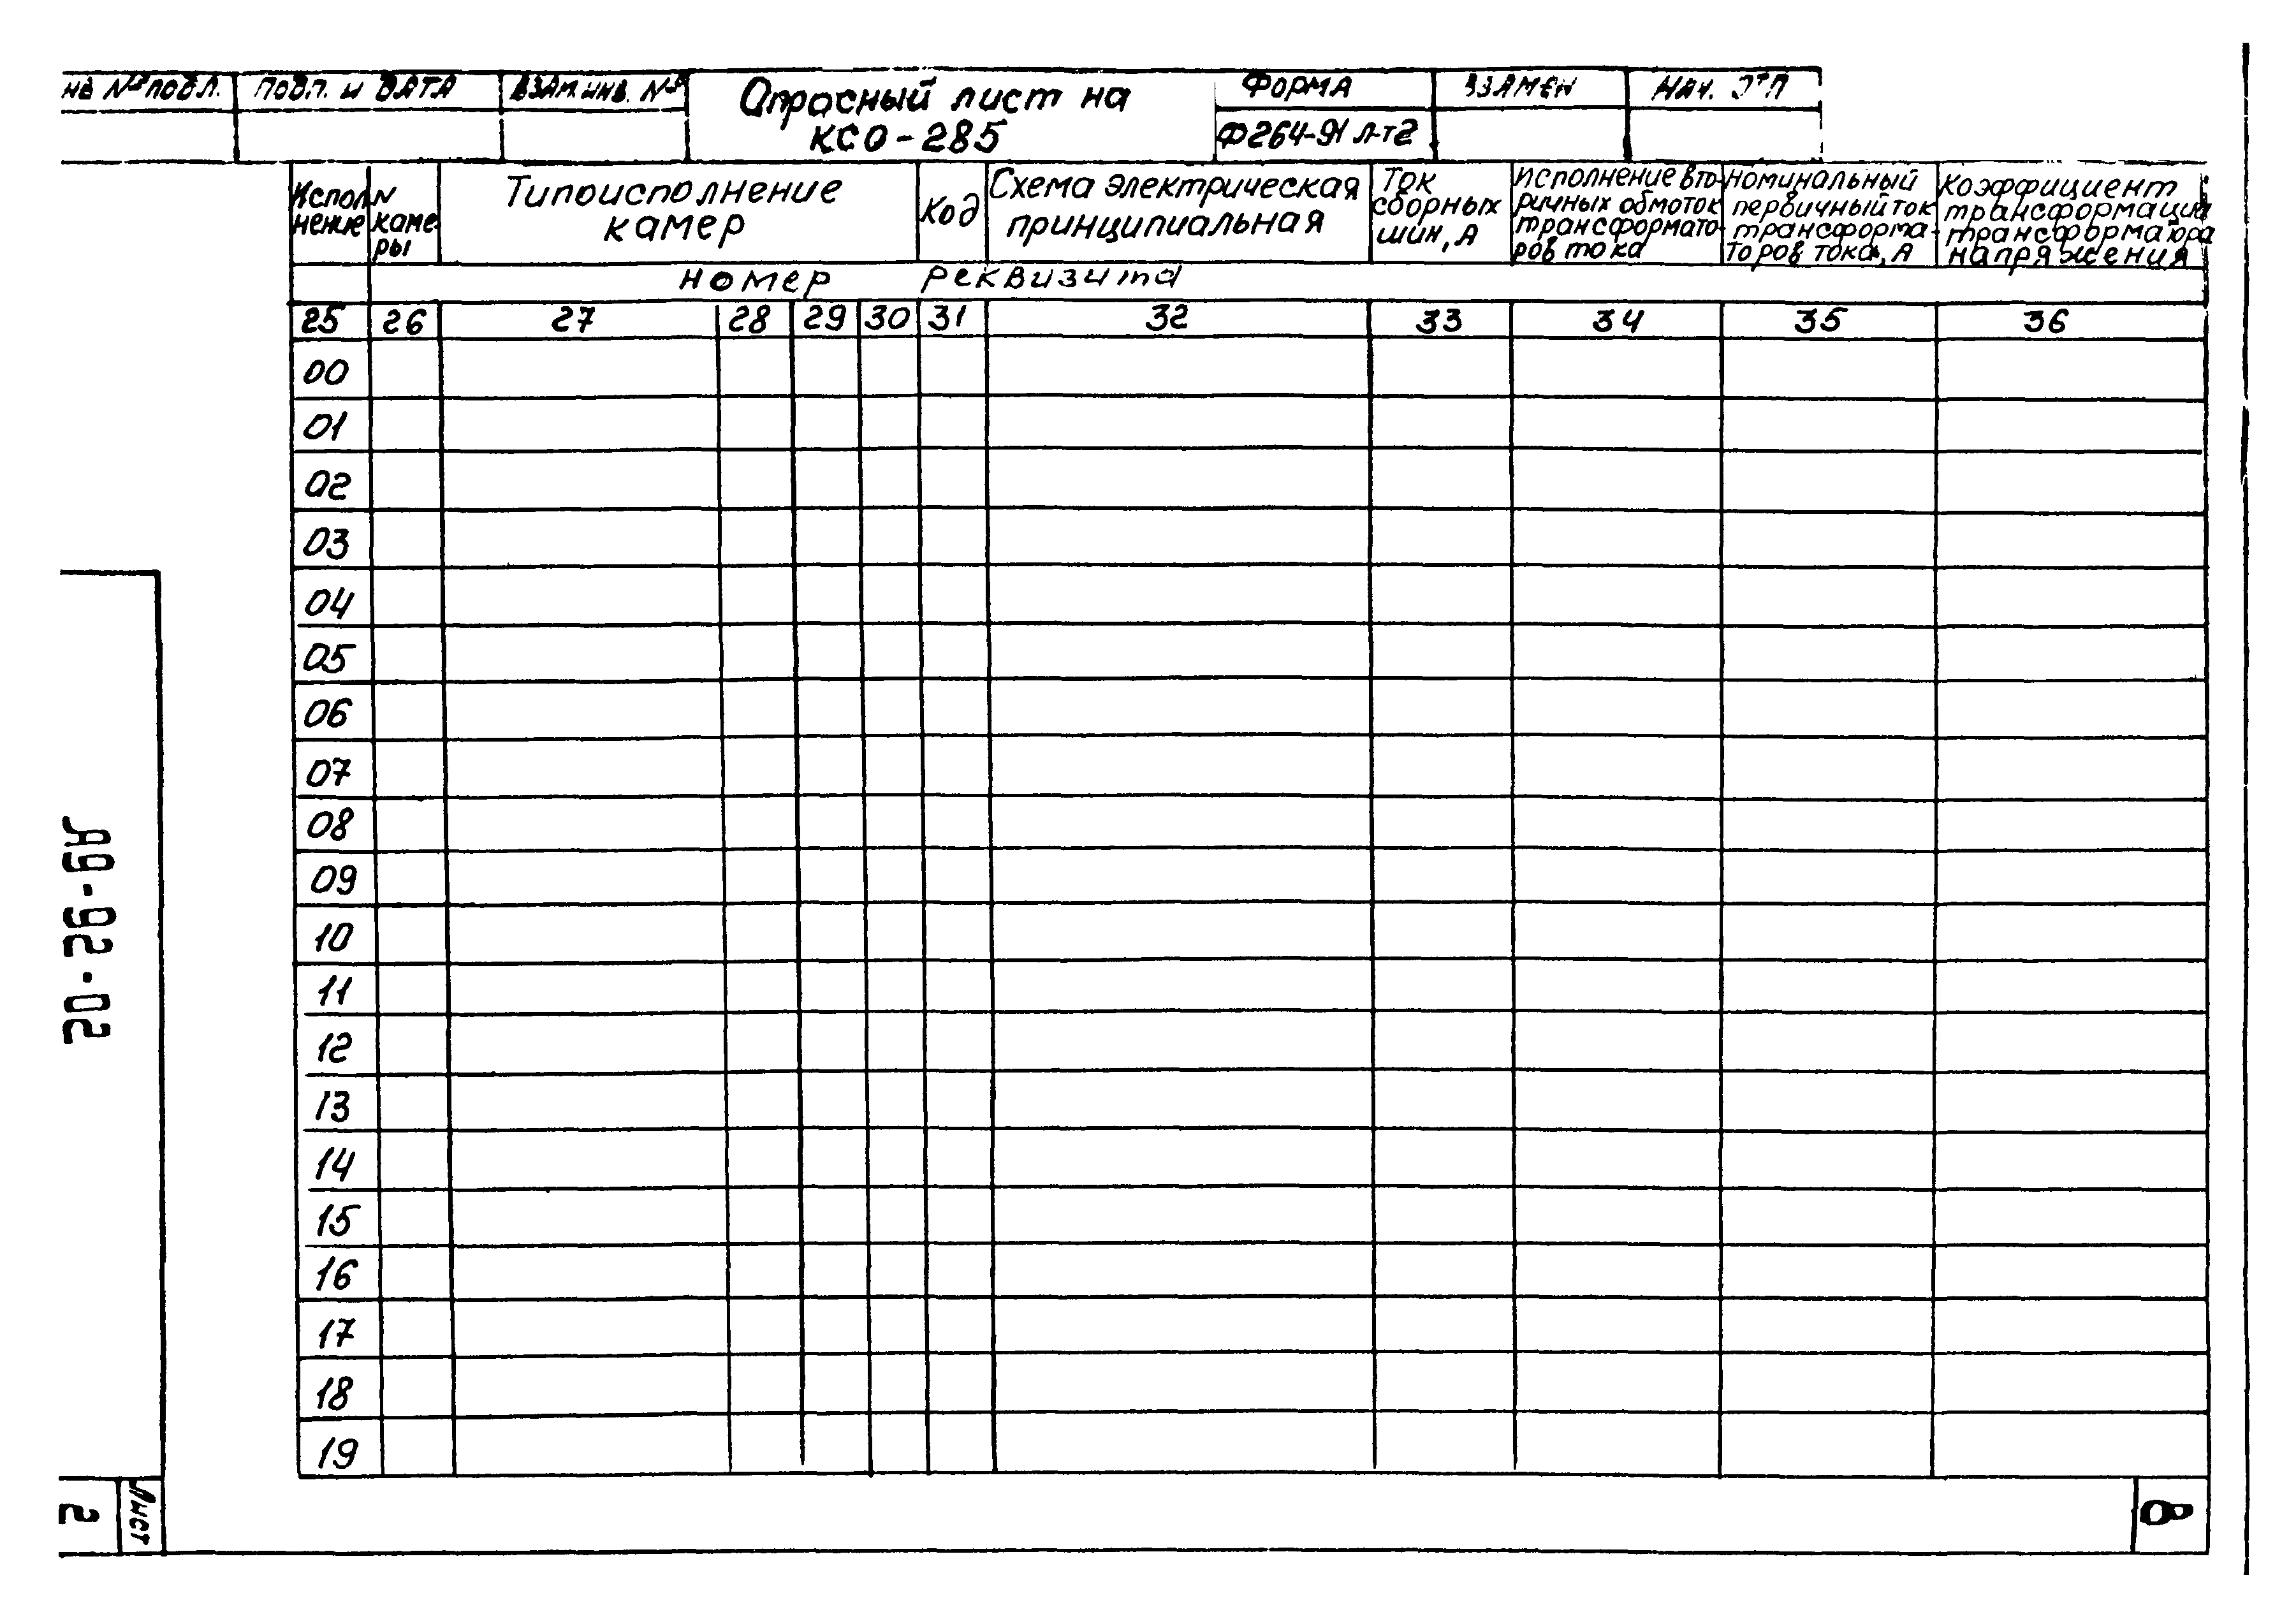 нв № подл. Подп. и дата Взам. инв. №
Опросный лист на
КСО-285
Форма Взамен Нач. ОТП
Ф264-91 л-т2
Исполнение
N камеры
Типоисполнение
камер
Код
Схема электрическая
принципиальная
Ток
сборных
шин, А
Исполнение вто-
ричных обмоток
трансформато-
ров тока
Номинальный
первичный ток
трансформа-
торов тока, А
Коэффициент
трансформации
трансформатора
напряжения
Номер реквизита
25 26 27 28 29 30 31 32 33 34 35 36
00
01
02
03
04
05
06
07
08
09
10
11
12
13
14
15
16
17
18
19
А9-92-02
Лист
2
8